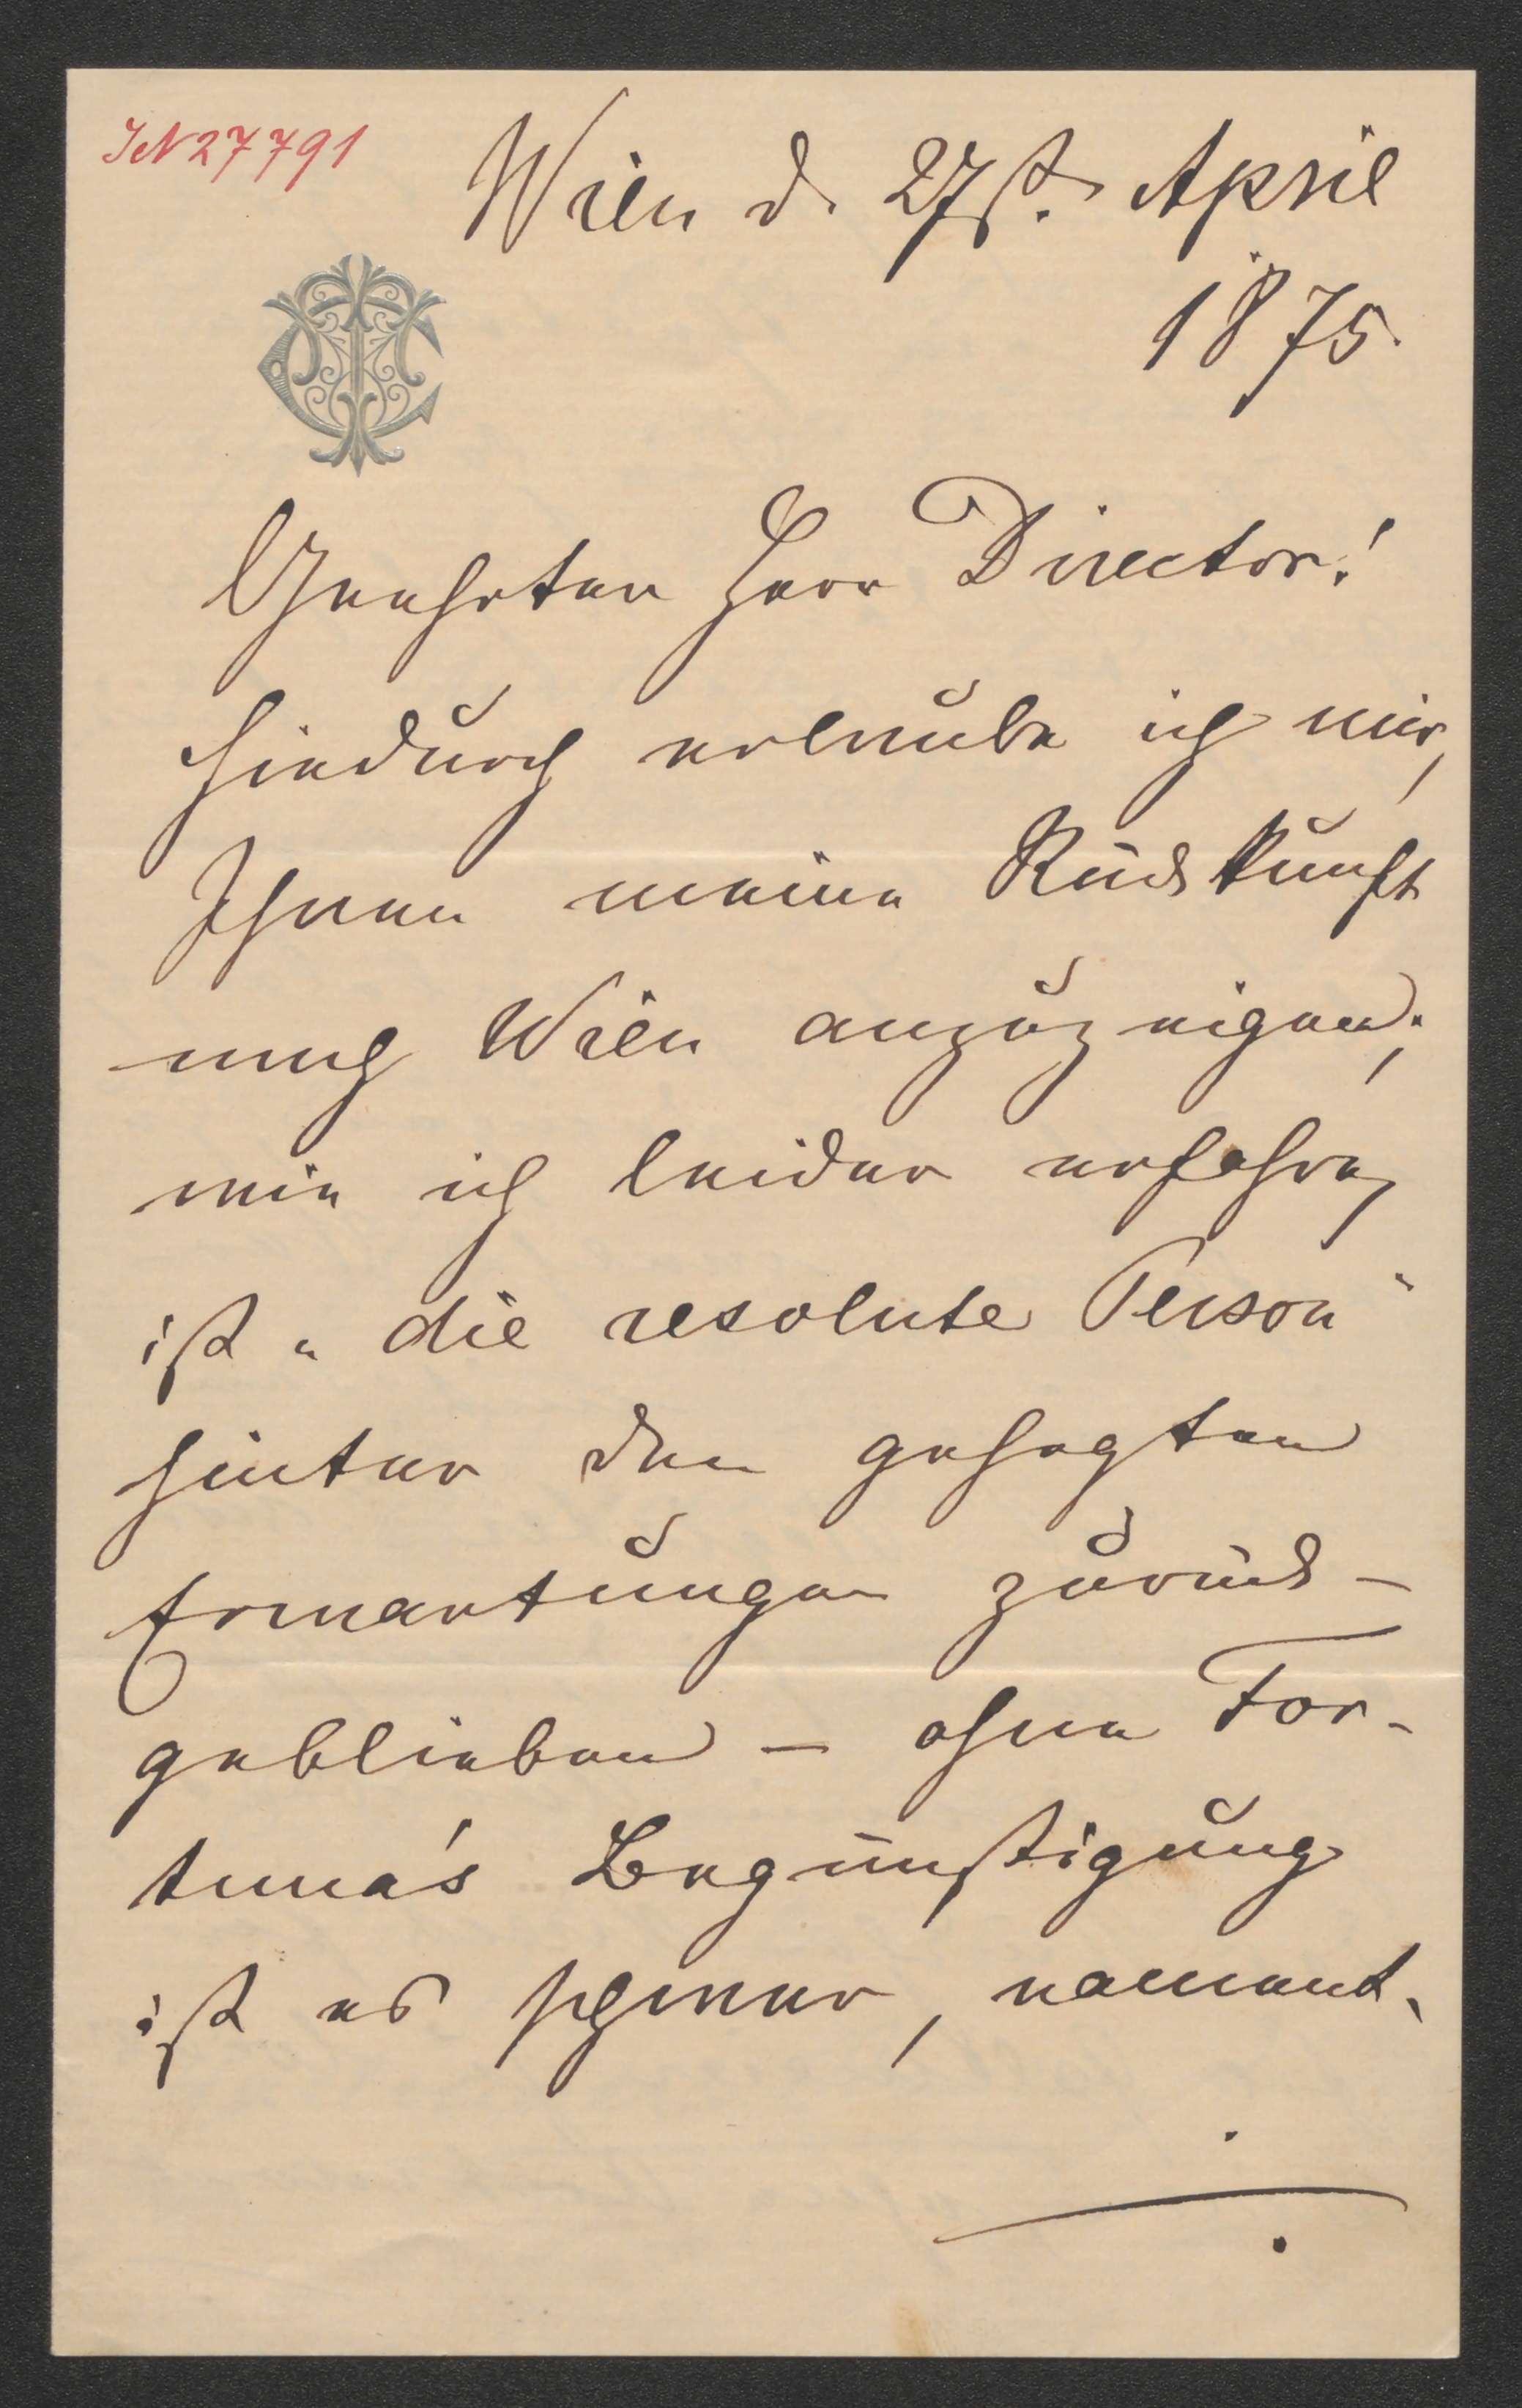 IN 27791
Wien d. 27st. April
1875.
Geehrter Herr Director!
Hiedurch erlaube ich mir,
Ihnen meine Rückkunft
nach Wien anzuzeigen;
wie ich leider erfahre,
ist „die resolute Person“
hinter den gehegten
Erwartungen zurück-
geblieben – ohne For-
tuna's Begünstigung
ist es schwer, nament-